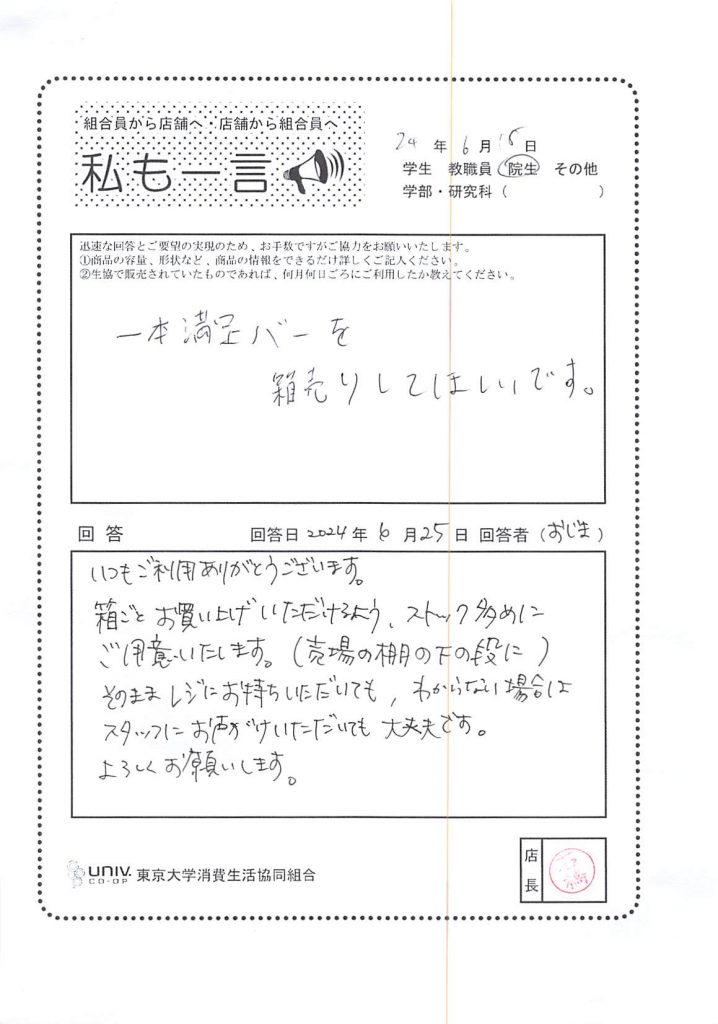 組合員から店舗へ・店舗から組合員へ
私も一言
24 年 6 月 15 日
学生 教職員 院生 その他
学部・研究科（ ）
迅速な回答とご要望の実現のため、お手数ですがご協力をお願いいたします。
①商品の容量、形状など、商品の情報をできるだけ詳しくご記入ください。
②生協で販売されていたものであれば、何月何日ごろにご利用したか教えてください。
一本満足バーを
箱売りしてほしいです。
回答 回答日 2024 年 6 月 25 日 回答者（おじま）
いつもご利用ありがとうございます。
箱ごとお買い上げいただけるよう、ストック多めに
ご用意いたします。（売場の棚の下の段に）
そのままレジにお持ちいただいても、わからない場合は
スタッフにお声がけいただいても大丈夫です。
よろしくお願いします。
UNIV.
CO-OP
東京大学消費生活協同組合
店長